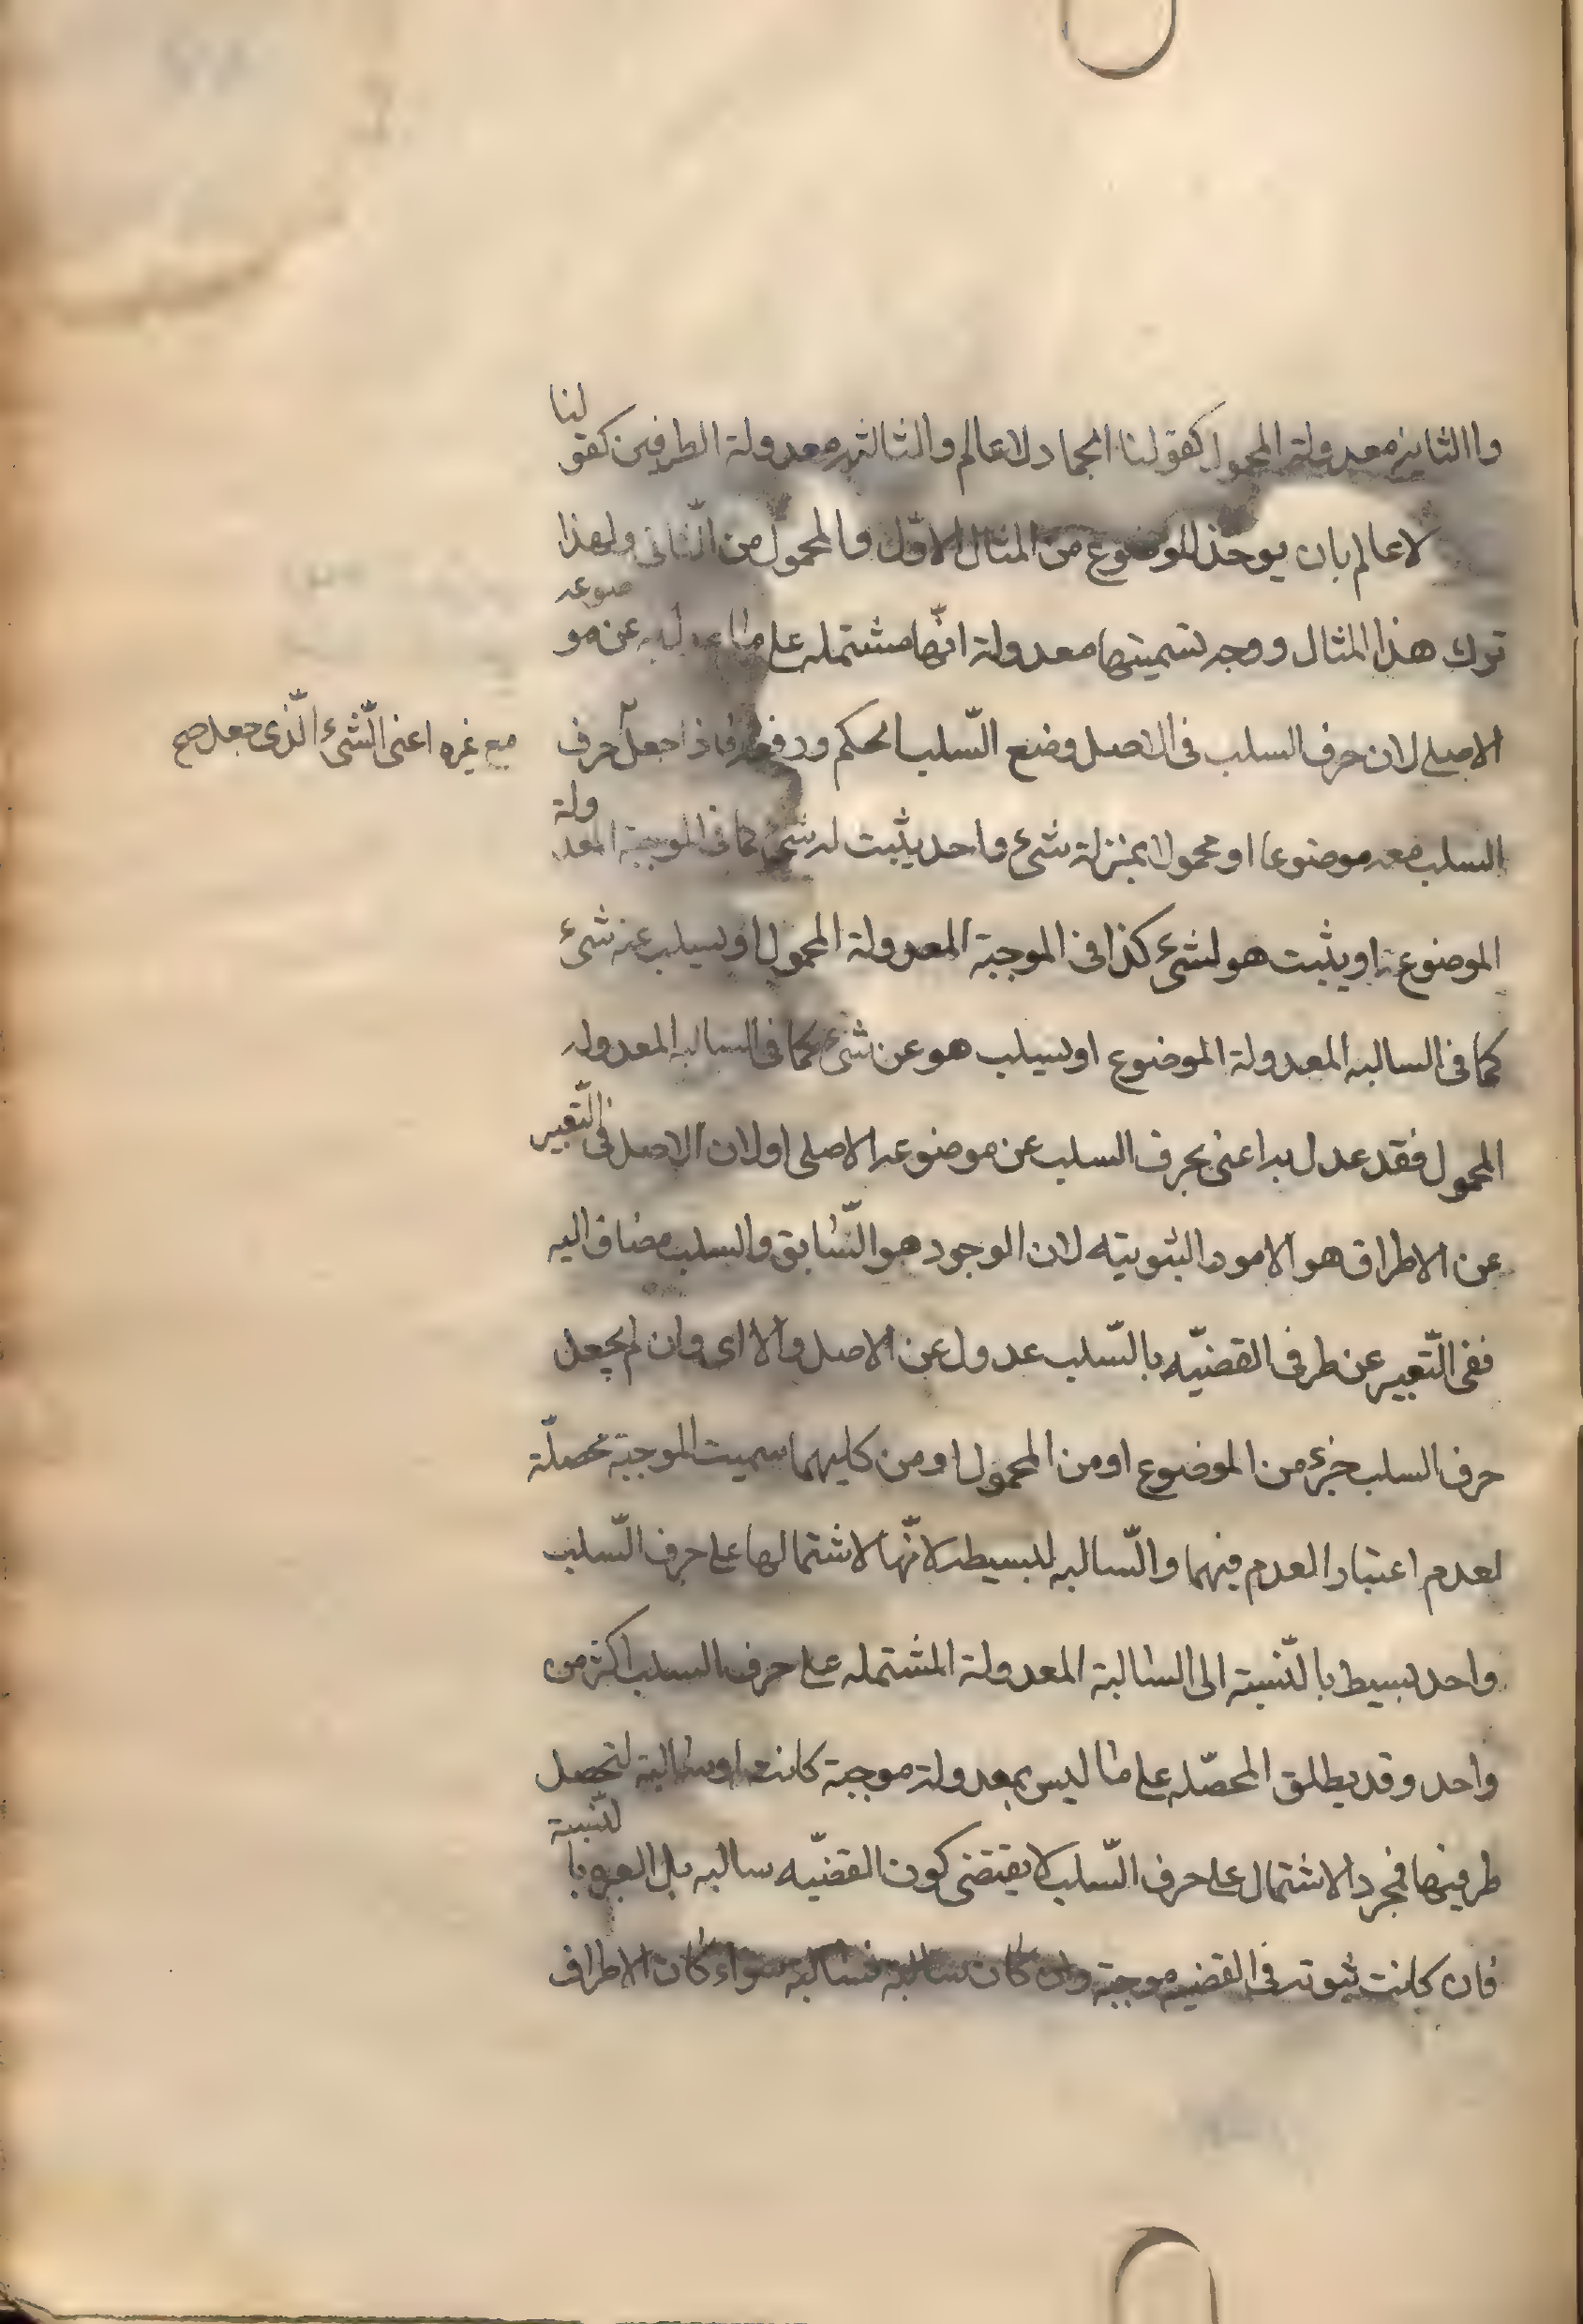 واالثانيه معدولة المحمول كقولنا الجماد لاعالم والثالثه معدولة الطرفين كقولنا
لاعالم بان يوحذ الموضوع من المثال الاوّل والمحمول من الثّانى ولهذا
ترك هذا المثال ووجه تسميتها معدولة انّها مشتمله على ما عن موضوعه
الاصلى لان حرف السلب فى الاصل وضع السّلب الحكم ورفعه فاذا جعل حرف
مع غيره اعنى الّشئ الّذى جعل صح
السلب معه موضوعا او محمولا بمنزلة شئ واحد يثبت له شئ كما فى الموجبة المعدولة
الموضوع او يثبت هو لشئ كذا فى الموجبة المعدولة المحمول او يسلب عنه شئ
كما فى السالبه المعدولة الموضوع او يسلب هو عن شئ كما فى السالبه المعدوله
المحمول فقد عدل به اعنى بحرف السلب عن موضوعه الاصلى او لان الاصل فى الّتعبير
عن الاطراف هو الامور الثبوتيته لان الوجود هو الّسابق والسلب مضاف اليه
ففى الّتعبير عن طرفى القضيّه بالسّلب عدول عن الاصل والا اى وان لم يجعل
حرف السلب جزء من الموضوع او من المحمول او من كليهما سميت الموجبة محصلّة
لعدم اعتبار العدم فيهما والسّالبه لبسيطه لانّها لاشتمالها على حرف السّلب
واحد بسيط بالنّسبة الى السالبة المعدولة المشتمله على حرف السلب اكثر من
واحد وقد يطلق المحصّله على ما ليس بمعدولة موجبة كانت او سالبة لتحصل
طرفيها فمجرد الاشتمال على حرف السّلب لايقتضى كون القضيّه سالبه بل العبره بالنّسبة
فان كانت ثبوته فى القضيه موجبة وان كان سالبة فسالبة سواء كان الاطراف